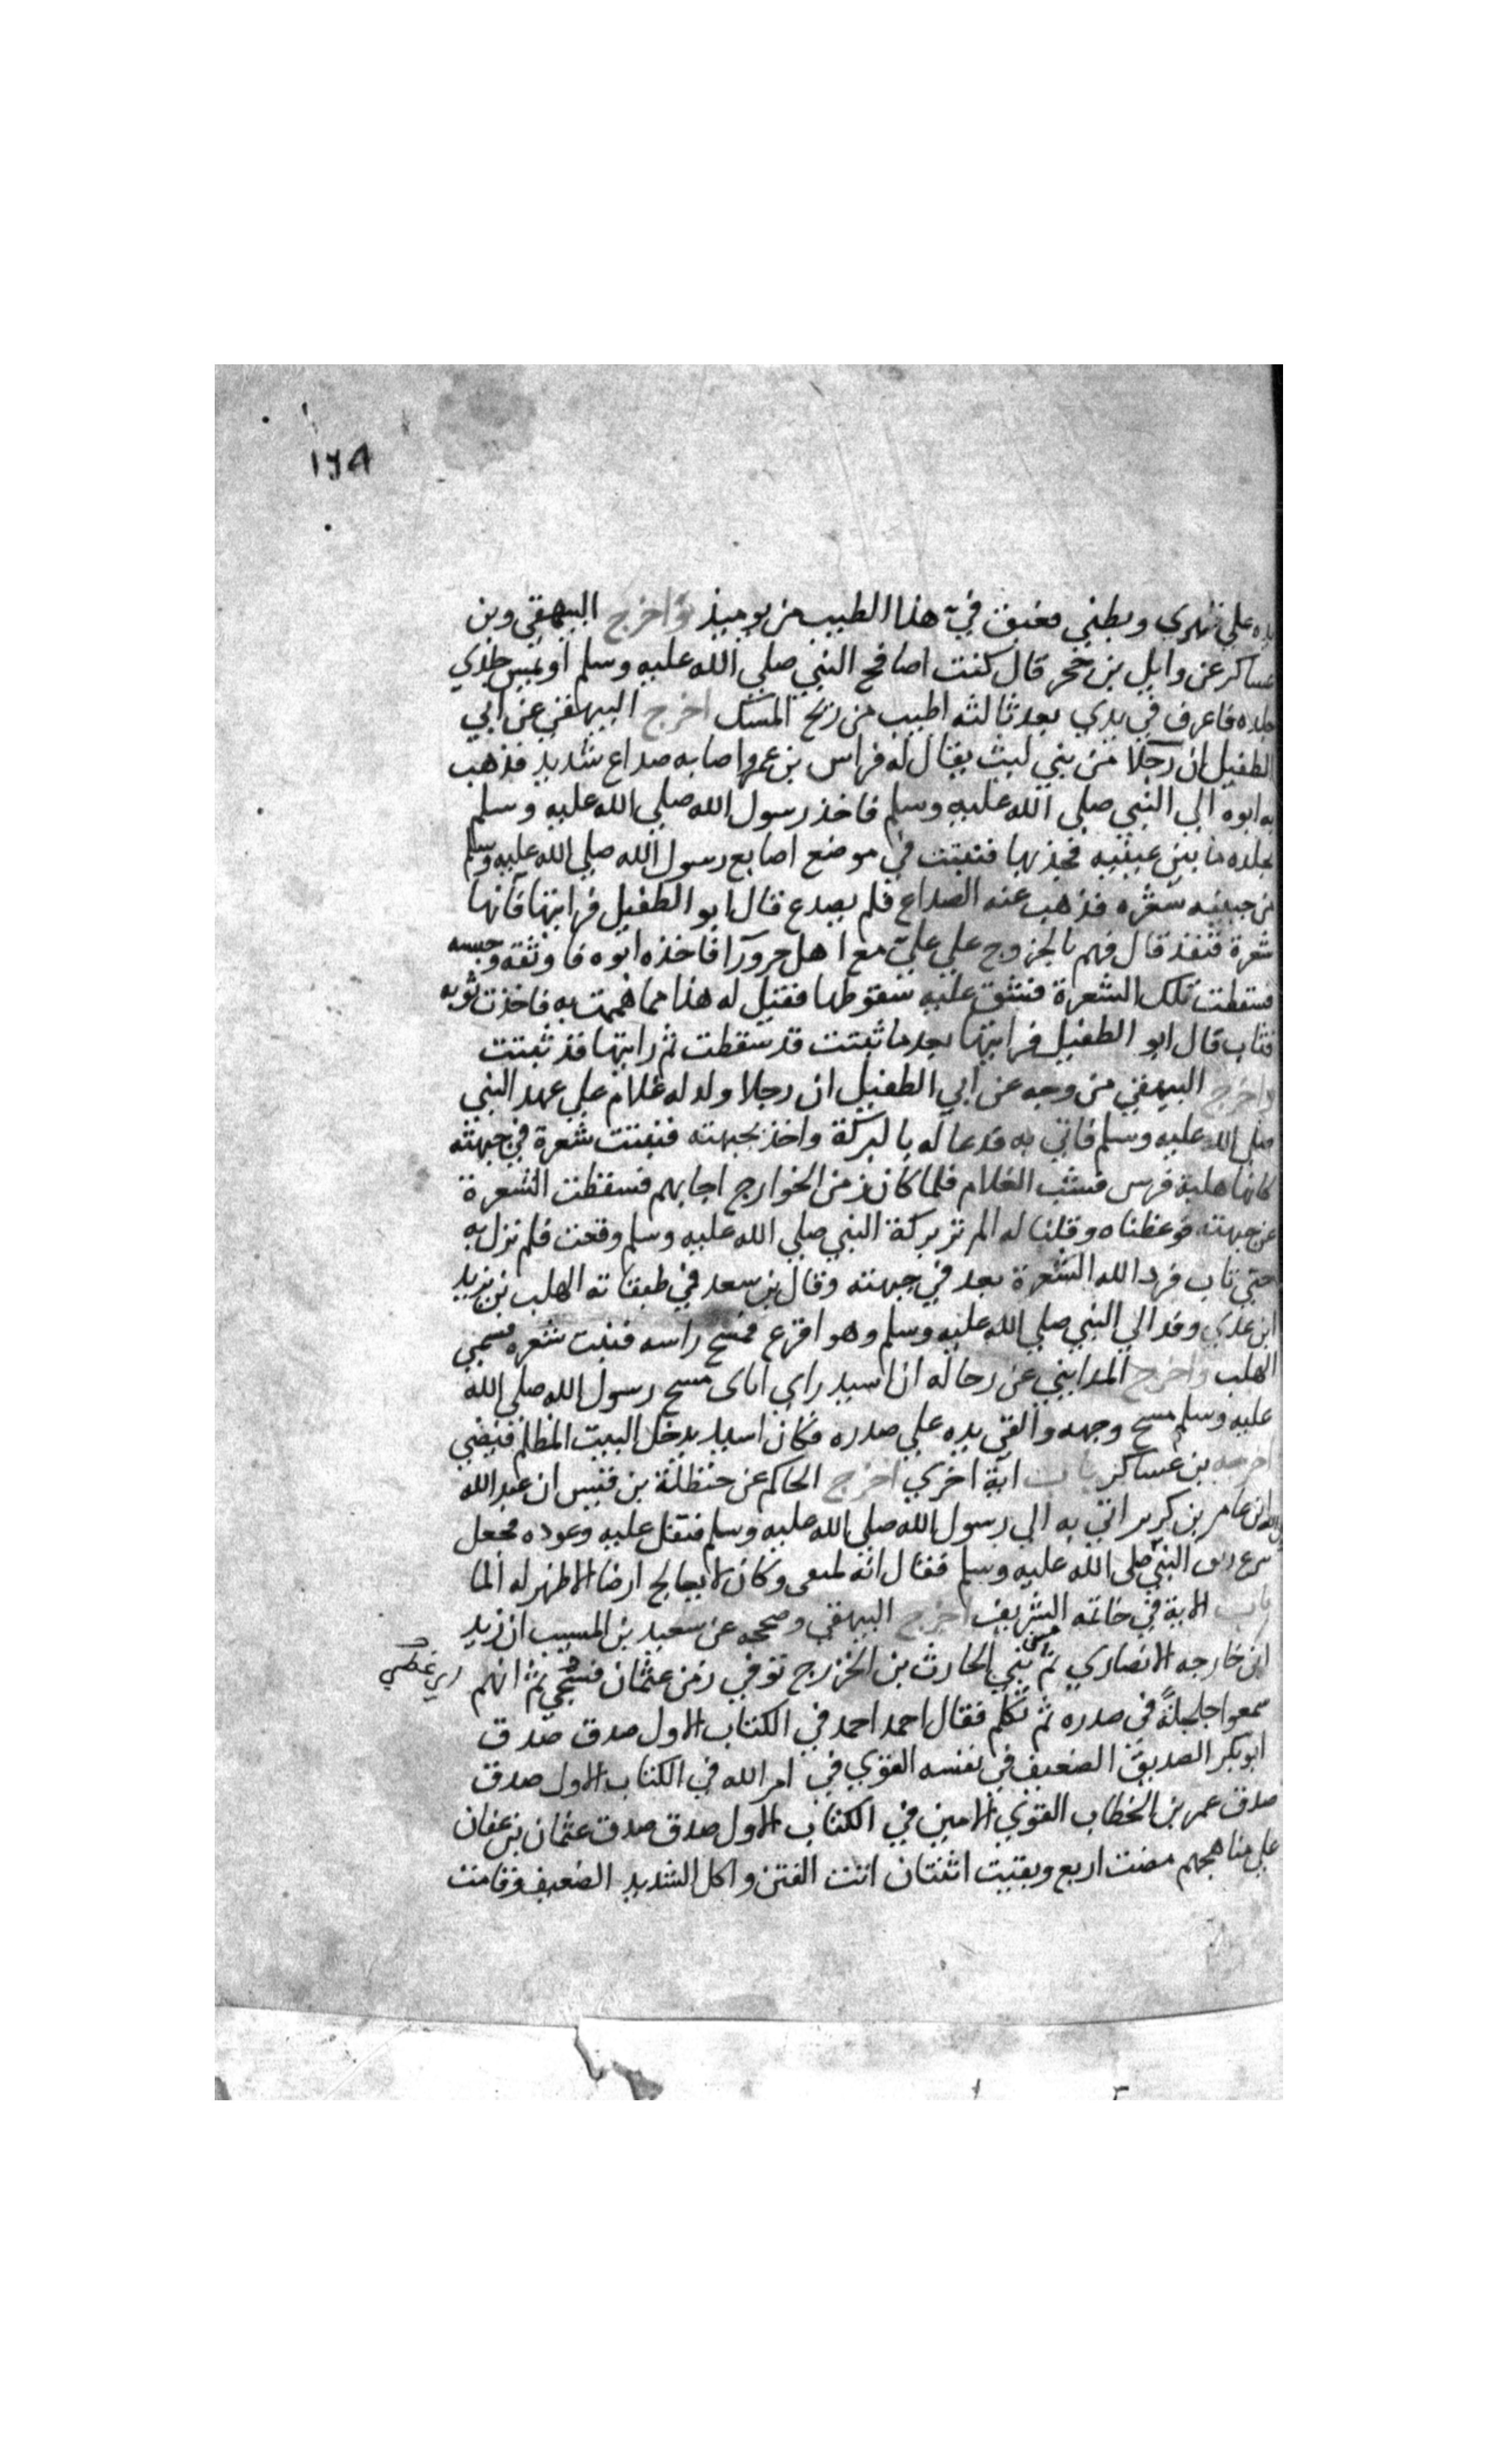 ١٦٨
يده علي ظهري وبطني فعبق في هذا الطيب من يوميذ واخرج البيهقي وبن
عساكر عن وايل بن حجر قال كنت اصافح النبي صلي الله عليه وسلم او يمس جلدي
جلده فاعرف في يدي بعد ثالثه اطيب من ريح المسك اخرج البيهقي عن ابي
الطفيل ان رجلا من بني ليث يقال له فراس بن عمرو اصابه صداع شديد فذهب
به ابوه الي النبي صلي الله عليه وسلم فاخذ رسول الله صلي الله عليه وسلم
بجلده ما بين عينيه فجذبها فنبتت في موضع اصابع رسول الله صلي الله عليه وسلم
من جبينه شعره فذهب عنه الصداع فلم يصدع قال ابو الطفيل فرايتها فانها
شعرة قنفذ قال فهم بالخروج علي علي مع اهل حرورآ فاخذه ابوه فاوثقه وحبسه
فسقطت تلك الشعرة فشق عليه سقوطها فقيل له هذا مما هممت به فاخذت توبه
فتاب قال ابو الطفيل فرايتها بعد ما ثبتت قد سقطت ثم رايتها قد ثبتت
واخرج البيهقي من وجه عن ابي الطفيل ان رجلا ولد له غلام علي عهد النبي
صلي الله عليه وسلم فاتي به فدعا له بالبركة واخذ بجبهته فنبتت شعرة في جبهته
كانها هلبة فرس فشب الغلام فلما كان زمن الخوارج اجابهم فسقطت الشعرة
عن جبهته فوعظناه وقلنا له الم تر بركة النبي صلي الله عليه وسلم وقعت فلم نزل به
حتي تاب فرد الله الشعرة بعد في جبهته وقال بن سعد في طبقاته الهلب بن يزيد
ابن عدي وفد الي النبي صلي الله عليه وسلم وهو اقرع فمسح راسه فنبت شعره فسمي
الهلب واخرج المدايني عن رجاله ان اسيد راي اناى مسح رسول الله صلي الله
عليه وسلم مسح وجهه والقي يده علي صدره فكان اسيد يدخل البيت المظلم فيضي
اخرجه بن عساكر باب اية اخري اخرج الحاكم عن حنظلة بن قيس ان عبد الله
ابن عامر بن كرير اتي به الي رسول الله صلي الله عليه وسلم فتفل عليه وعوده فجعل
النبي صلي الله عليه وسلم فقال انه لمسقى وكان لا يعالج ارضا الا ظهر له الما
باب الاية في خاتمه الشريف اخرج البيهقي وصححه عن سعيد بن المسيب ان زيد
ابن خارجه الانصاري ثم من بني الحارث بن الخزرج توفي زمن عثمان فسجي ثم انهم اي غطي
سمعوا جلجلةً في صدره ثم تكلم فقال احمد احمد في الكتاب الاول صدق صدق
ابو بكر الصديق الضعيف في نفسه القوي في امر الله في الكتاب الاول صدق
صدق عمر بن الخطاب القوي الامين في الكتاب الاول صدق صدق عثمان بن عفان
علي مناهجهم مضت اربع وبقيت اثنتان اتت الفتن واكل الشديد الضعيف وقامت